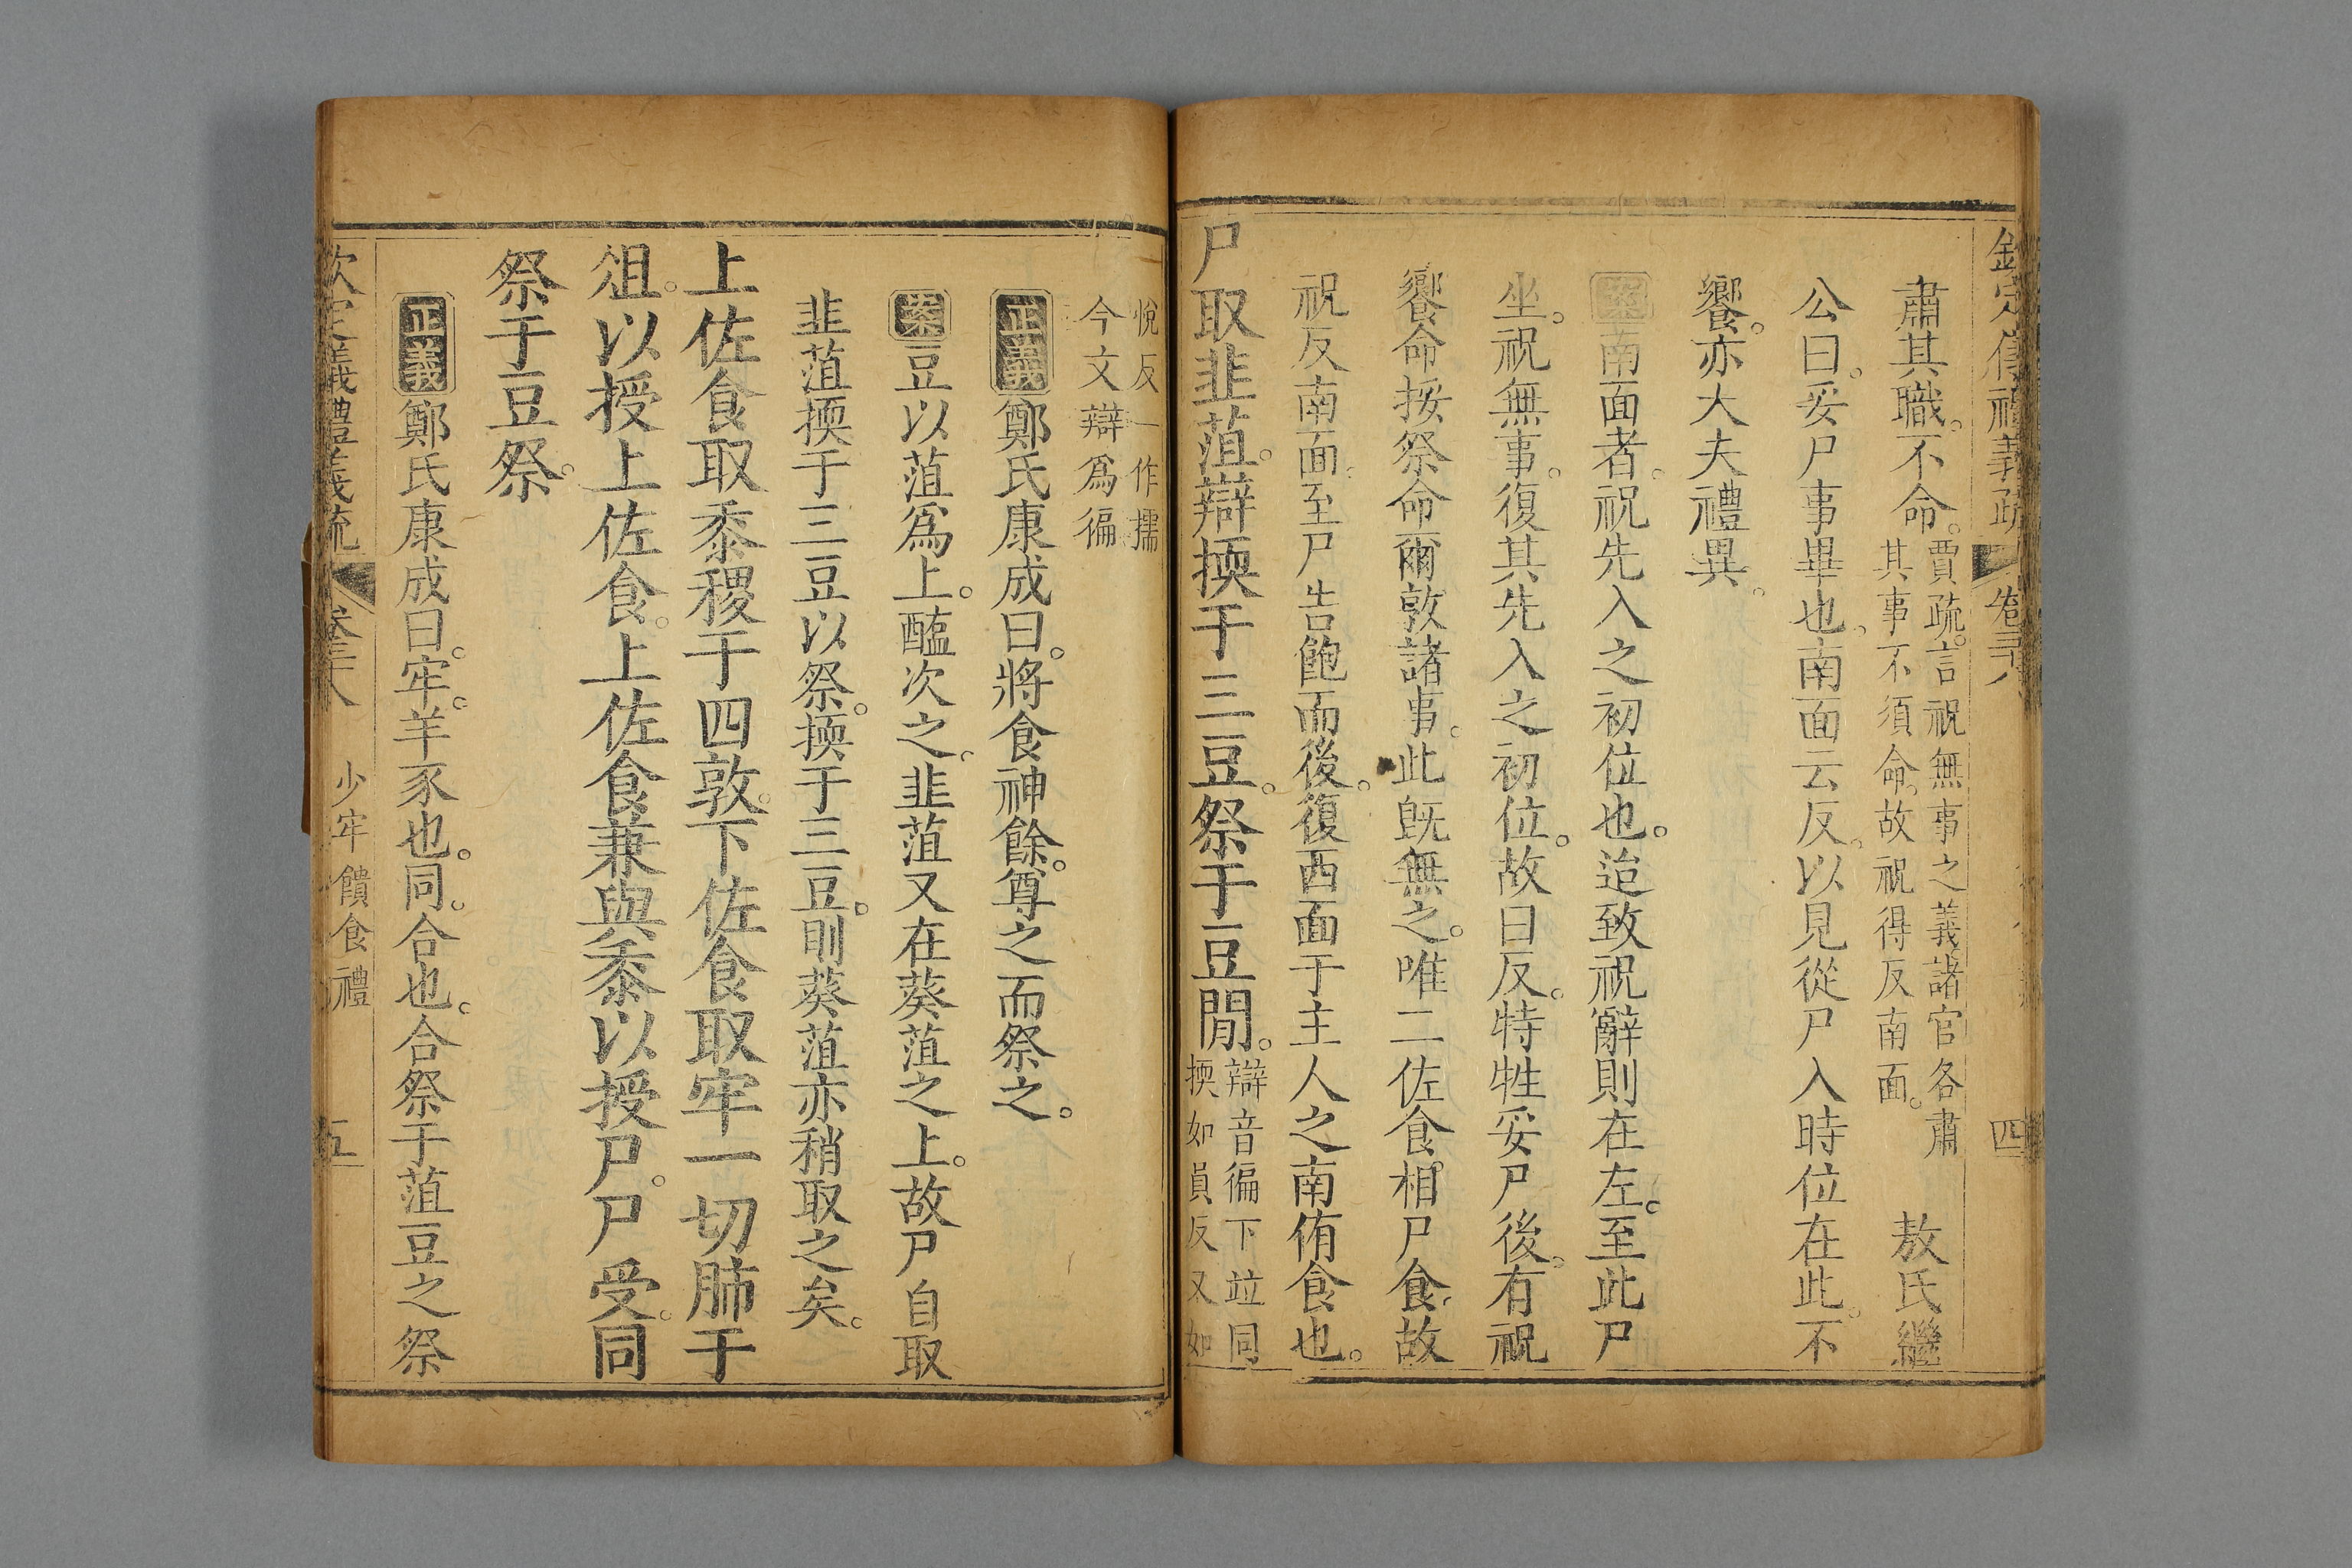 欽定儀禮義疏 卷三十八 四
肅其職。不命。賈疏。言祝無事之義諸官各肅其事不須命。故祝得反南面。 敖氏繼
公曰。妥尸事畢也。南面云反。以見從尸入時位在此。不
饗。亦大夫禮異。
案南面者。祝先入之初位也。迨致祝辭則在左。至此尸
坐。祝無事。復其先入之初位。故曰反。特牲妥尸後。有祝
饗命挼祭命爾敦諸事。此旣無之。唯二佐食相尸食。故
祝反南面。至尸告飽而後。復西面于主人之南侑食也。
尸取韭菹。辯擩于三豆。祭于豆閒。辯音徧下竝同擩如員反又如
悅反一作擩今文辯爲徧
正義鄭氏康成曰。將食神餘。尊之而祭之。
案豆以菹爲上。醢次之。韭菹又在葵菹之上。故尸自取
韭菹擩于三豆以祭。擩于三豆。則葵菹亦稍取之矣。
上佐食取黍稷于四敦。下佐食取牢一切肺于
俎。以授上佐食。上佐食兼與黍以授尸。尸受。同
祭于豆祭。
正義鄭氏康成曰。牢。羊豕也。同。合也。合祭于菹豆之祭
欽定儀禮義疏 卷三十八 少牢饋食禮 五